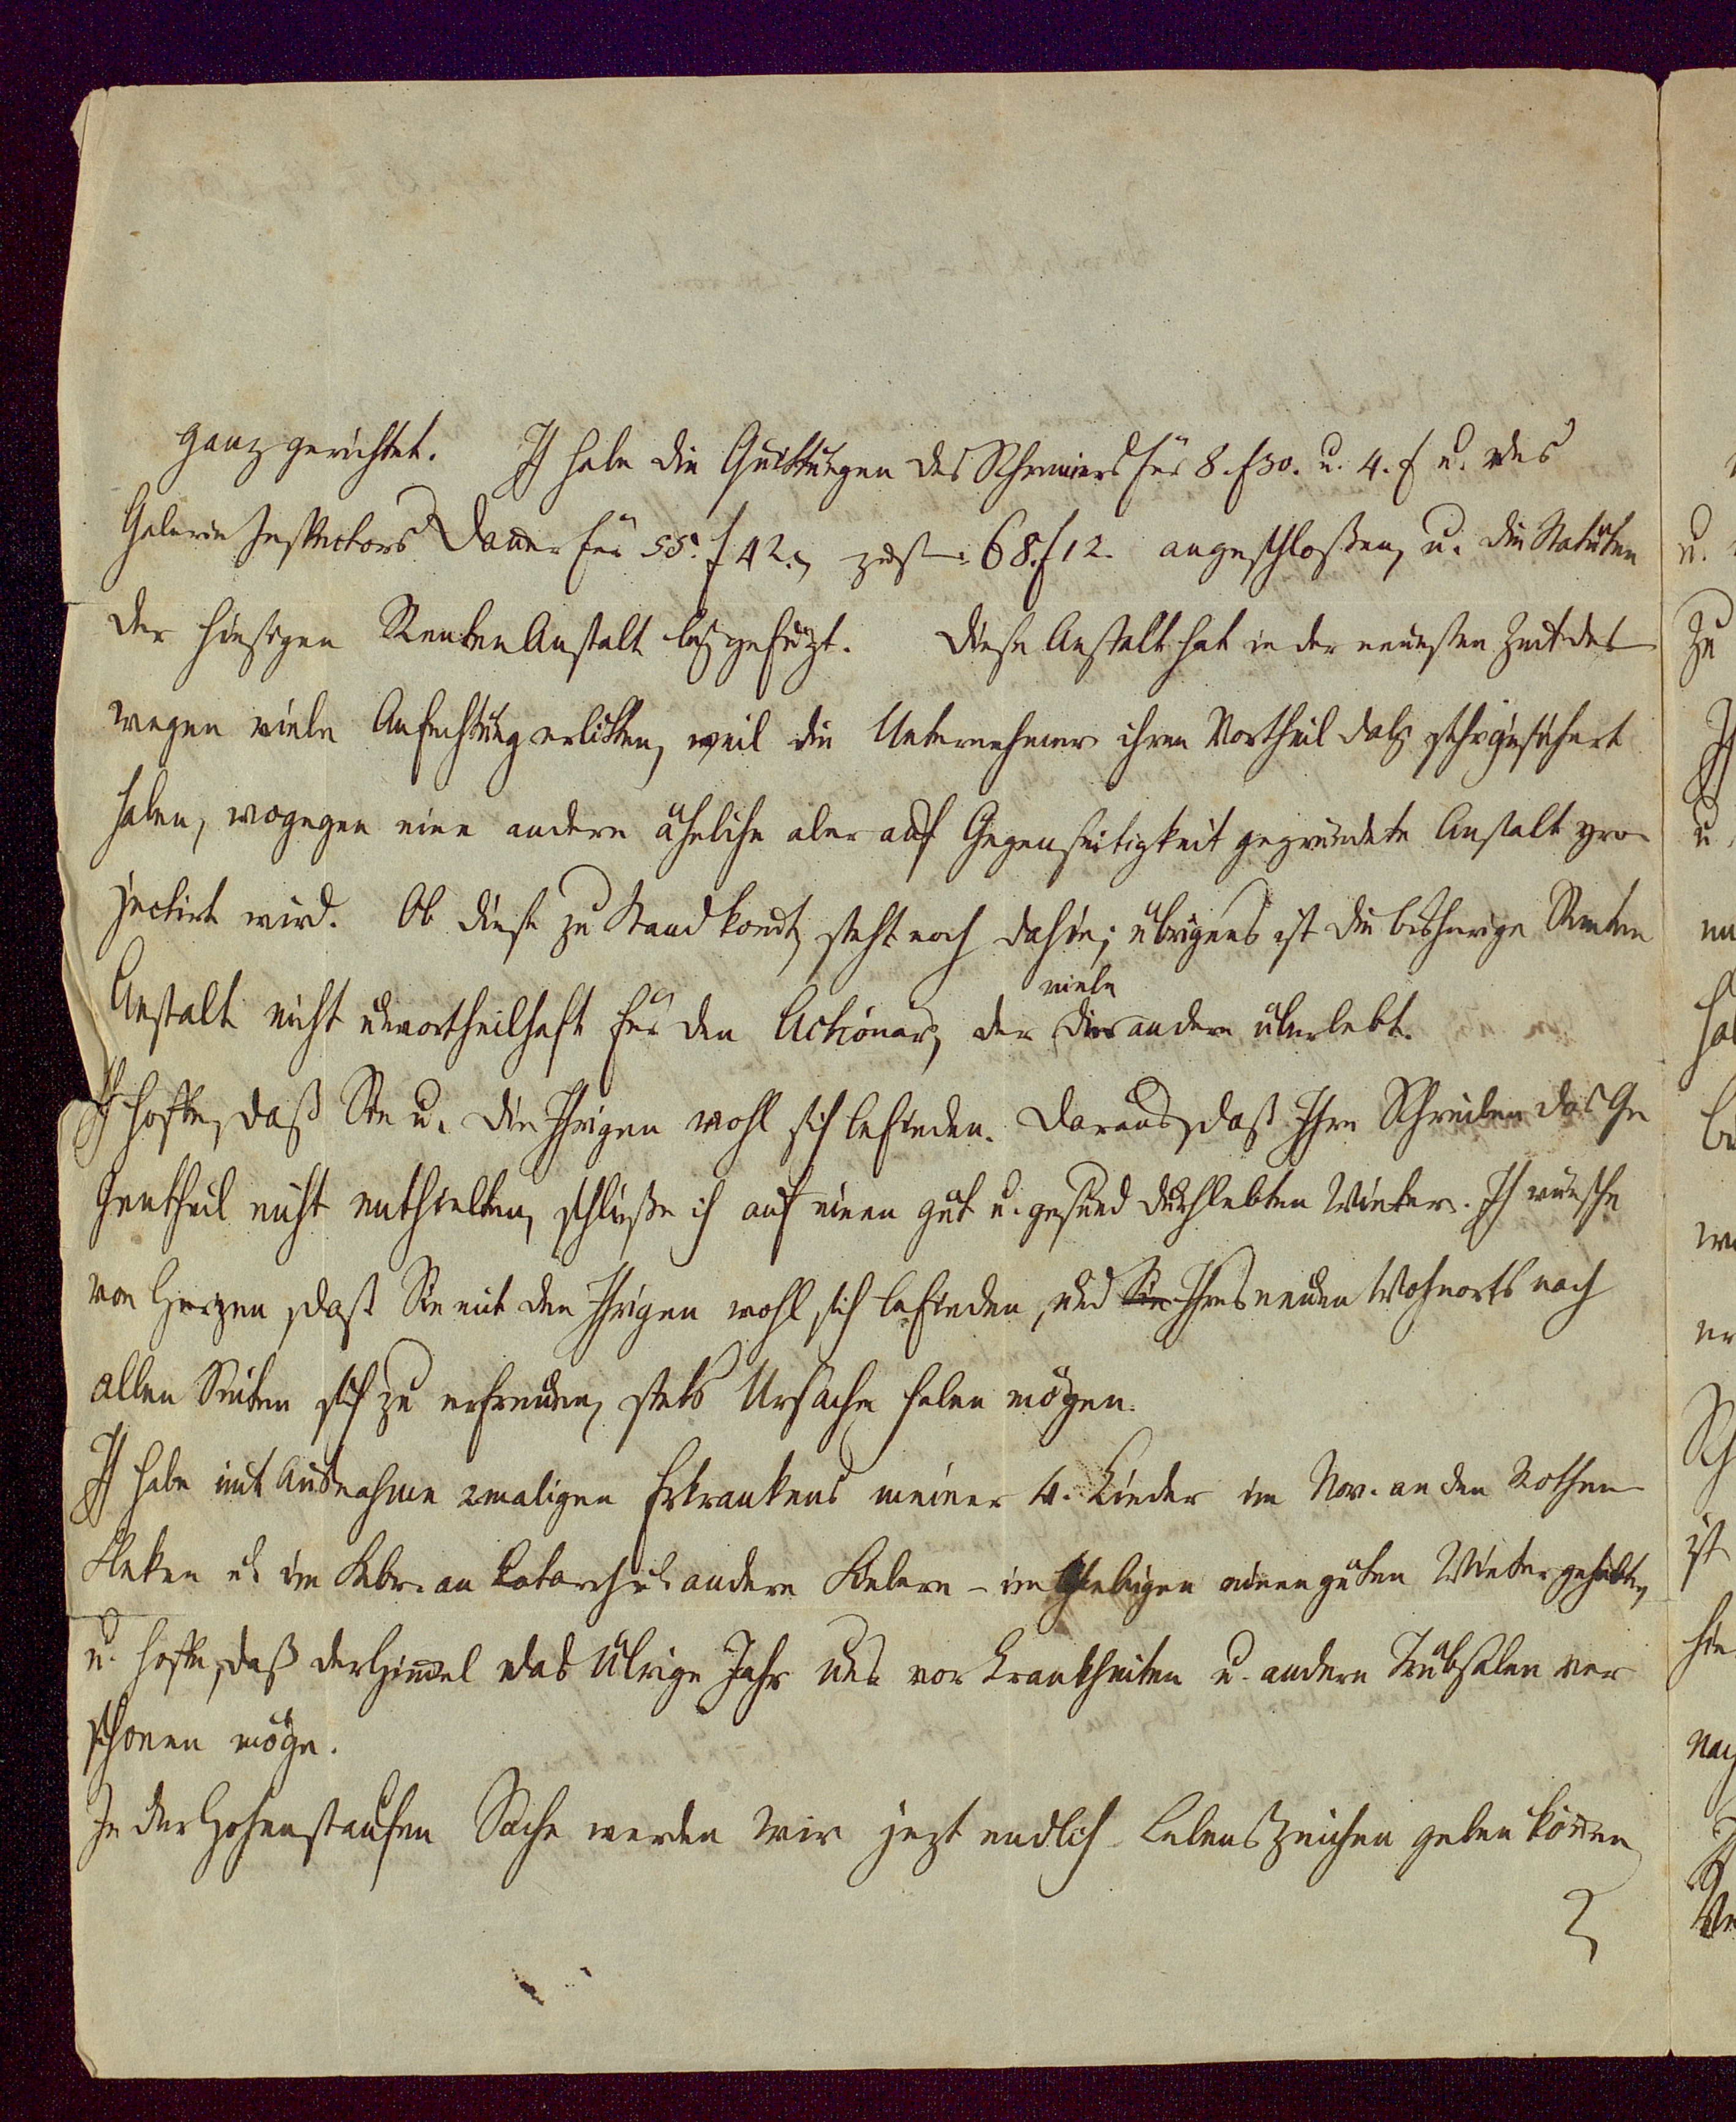 ganz gerichtet. Ich habe die Quittungen des Schreiners für 8. f 30. u. 4. f u. des
Galerie Inspectors Danner für 55. f 42., zus. 68. f 12. angeschloßen, u. die Statuten
der hiesigen RentenAnstalt beigefügt. Diese Anstalt hat in der neuesten Zeit des
wegen viele Anfechtung erlitten, weil die Unternehmer ihren Vortheil dabei sehr gesichert
haben, wogegen eine andere ähnliche aber auf Gegenseitigkeit gegründete Anstalt pro
jectirt wird. Ob diese zu Stand kom̄t, steht noch dahin; übrigens ist die bisherige Renten
Anstalt nicht unvortheilhaft für den Actionär, der viele andere überlebt.
Ich hoffe, daß Sie u. die Ihrigen wohl sich befinden. Daraus, daß Ihre Schreiben das Ge
gentheil nicht enthielten, schließe ich auf einen gut u. gesund durchlebten Winter. Ich wünsche
von Herzen, daß Sie mit den Ihrigen wohl sich befinden, und Sie Ihres neuen Wohnorts nach
allen Seiten sich zu erfreuen, stets Ursache haben mögen.
Ich habe mit Ausnahme 2maligen Erkrankens meiner 4. Kinder im Nov. an den Rothen
Fleken u. im Febr. an Katarrh u. andern Fiebern – im Uebrigen einen guten Winter gehabt,
u. hoffe, daß der Him̄el das übrige Jahr uns vor Krankheiten u. andern Trübsalen ver
schonen möge.
In der Hohenstaufen Sache werden wir jezt endlich Lebenszeichen geben kön̄en
u.
Zu
Ich
u.
hab
ist